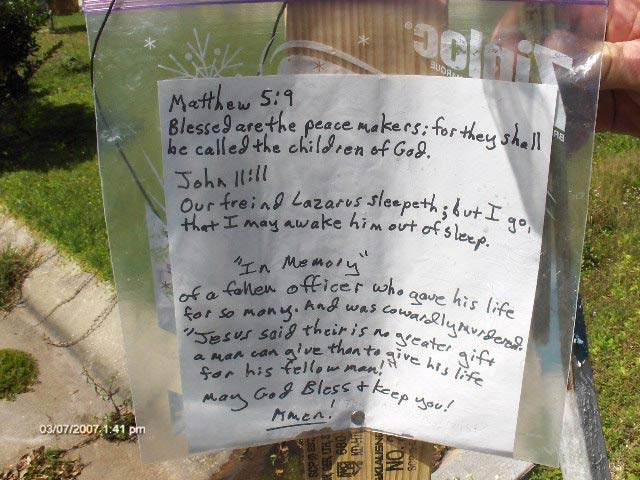 Ziploc®
MARQUE
Matthew 5:9
Blessed are the peace makers; for they shall
be called the children of God.
John 11:11
Our freind Lazarus sleepeth; but I go,
that I may awake him out of sleep.
"In Memory"
of a fallen officer who gave his life
for so many. And was cowardly murdered.
"Jesus said their is no greater gift
a man can give than to give his life
for his fellow man!"
May God Bless & keep you!
Amen!
03/07/2007 1:41 pm